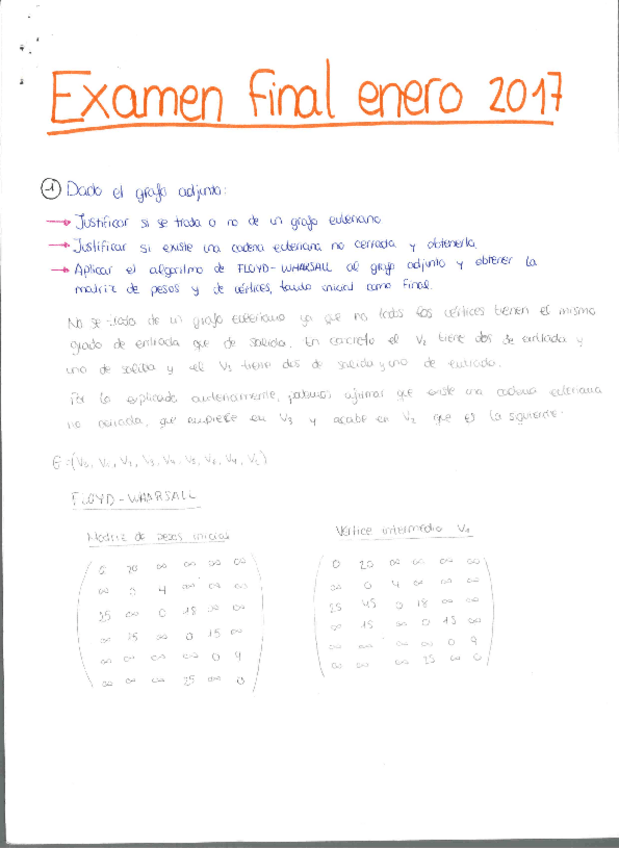 Examen Final enero 2017
1 Dado el grafo adjunto:
→ Justificar si se trata o no de un grafo euleriano
→ Justificar si existe una cadena euleriana no cerrada y obtenerla.
→ Aplicar el algoritmo de FLOYD-WHARSALL al grafo adjunto y obtener la
matriz de pesos y de vértices, tanto inicial como final.
No se trata de un grafo euleriano ya que no todos los vértices tienen el mismo
grado de entrada que de salida. En concreto el V2 tiene dos de entrada y
uno de salida y el V3 tiene dos de salida y uno de entrada.
Por lo explicado anteriormente, podemos afirmar que existe una cadena euleriana
no cerrada, que empiece en V3 y acabe en V2 que es la siguiente:
FLOYD-WHARSALL
Matriz de pesos inicial
Vértice intermedio V1
0 20 ∞ ∞ ∞ ∞
∞ 0 4 ∞ ∞ ∞
25 ∞ 0 18 ∞ ∞
∞ 15 ∞ 0 15 ∞
∞ ∞ ∞ ∞ 0 9
∞ ∞ ∞ 25 ∞ 0
0 20 ∞ ∞ ∞ ∞
∞ 0 4 ∞ ∞ ∞
25 45 0 18 ∞ ∞
∞ 15 ∞ 0 15 ∞
∞ ∞ ∞ ∞ 0 9
∞ ∞ ∞ 25 ∞ 0